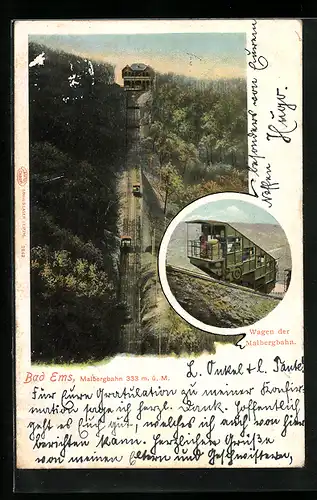 Bad Ems, Malbergbahn 333 m. ü. M.
Wagen der
Malbergbahn.
L. Onkel & l. Tante!
Für Eure Gratulation zu meiner Konfir-
mation sage ich herzl. Dank. Hoffentlich
geht es Euch gut, welches ich auch von hier
berichten kann. Herzliche Grüße
von meinen Eltern und Geschwistern,
besonders von Eurem
Neffen Hugo.